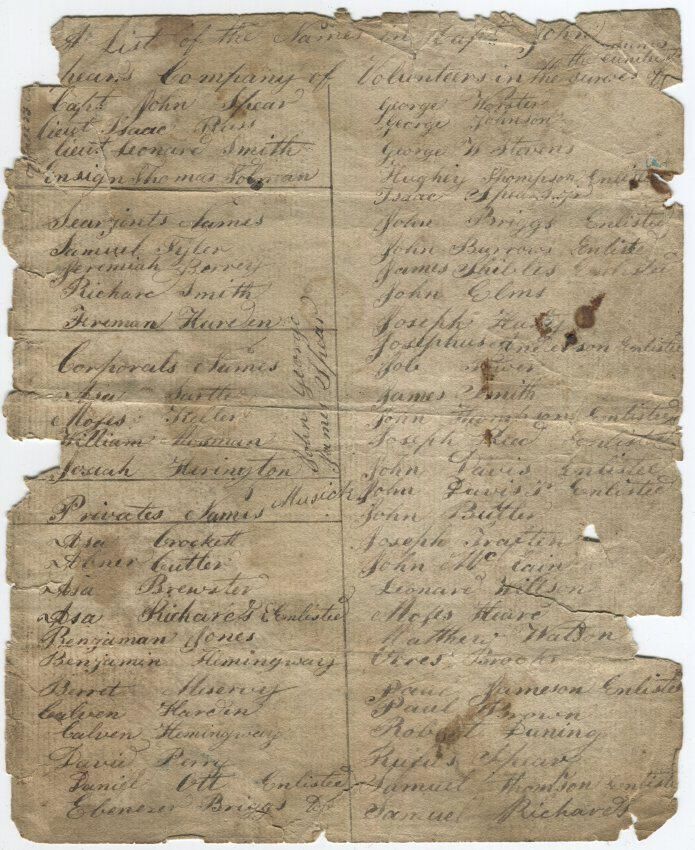 A List of the Names in Capt John
Spears Company of Volunteers in the service of
the united
Capt John Spear
Lieut Isaac Russ
Lieut Leonard Smith
Ensign Thomas
Searjents Names
Samuel Tyler
Jeremiah Berrey
Richard Smith
Freman Harden
Corporals Names
Asa
Moses Keller
William
Josiah Herington
John George
James Spear
Musick
Privates Names
Asa Crockett
Abner Cutler
Asa Brewster
Asa Richards Enlisted
Benjaman Jones
Benjamin Hemingway
Birret Meservy
Calven Harden
Calven Hemingway
David Perry
Daniel Ott Enlisted
Ebenezer Briggs Do
George Worster
George Johnson
George W Stevens
Hughey Thompson Enlisted
Isaac Spear
John Briggs Enlisted
John Burrows Enlisted
James Shibles Enlisted
John Elms
Joseph
Josephus Anderson Enlisted
Job
James Smith
John Thompson Enlisted
Joseph Reed Enlisted
John Davis Enlisted
John Davis Enlisted
John Butler
Joseph Traften
John Mc Cain
Leonard Willson
Moses Heard
Matthew Watson
Brooks
Paul Jameson Enlisted
Paul Brown
Robert Duning
Rufus Spear
Samuel Thomson Enlisted
Samuel Richards